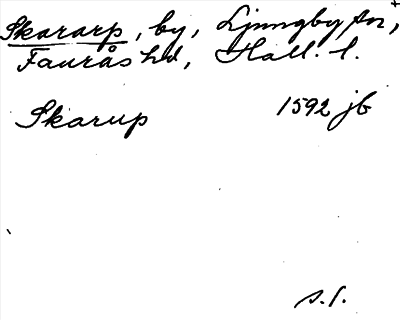 Skararp, by, Ljungby sn,
Faurås hd, Hall. l.
Skarup 1592 jb
s. 1.